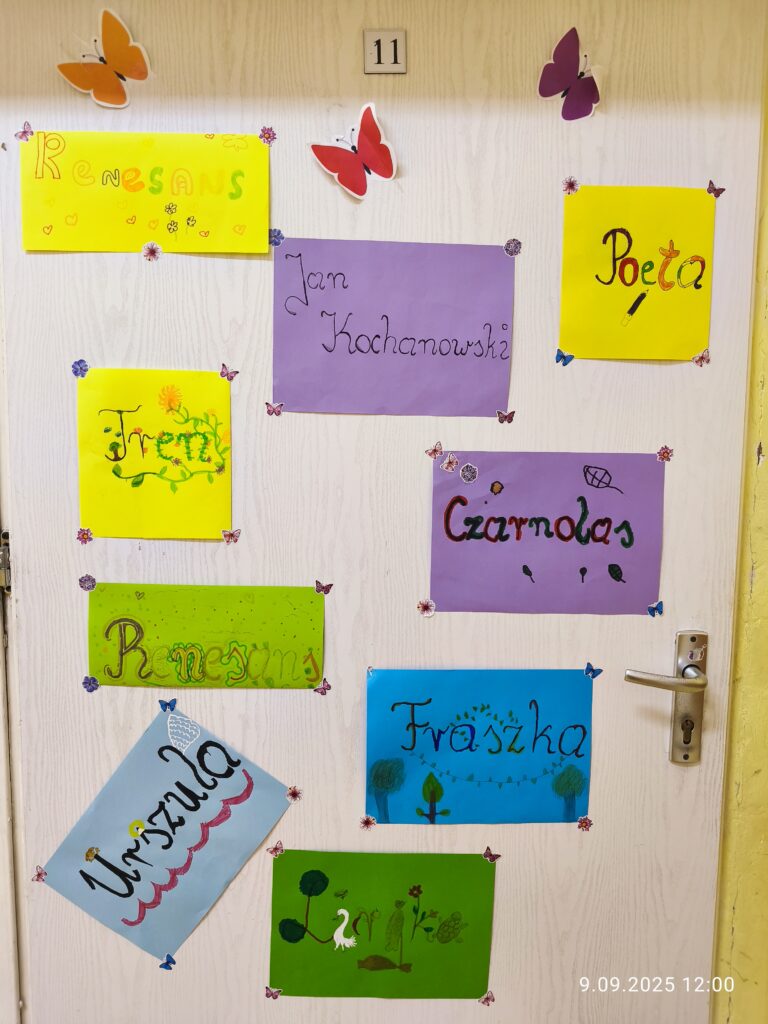 11
Renesans
Jan
Kochanowski
Poeta
Tren
Czarnolas
Renesans
Fraszka
Urszula
Liryka
9.09.2025 12:00